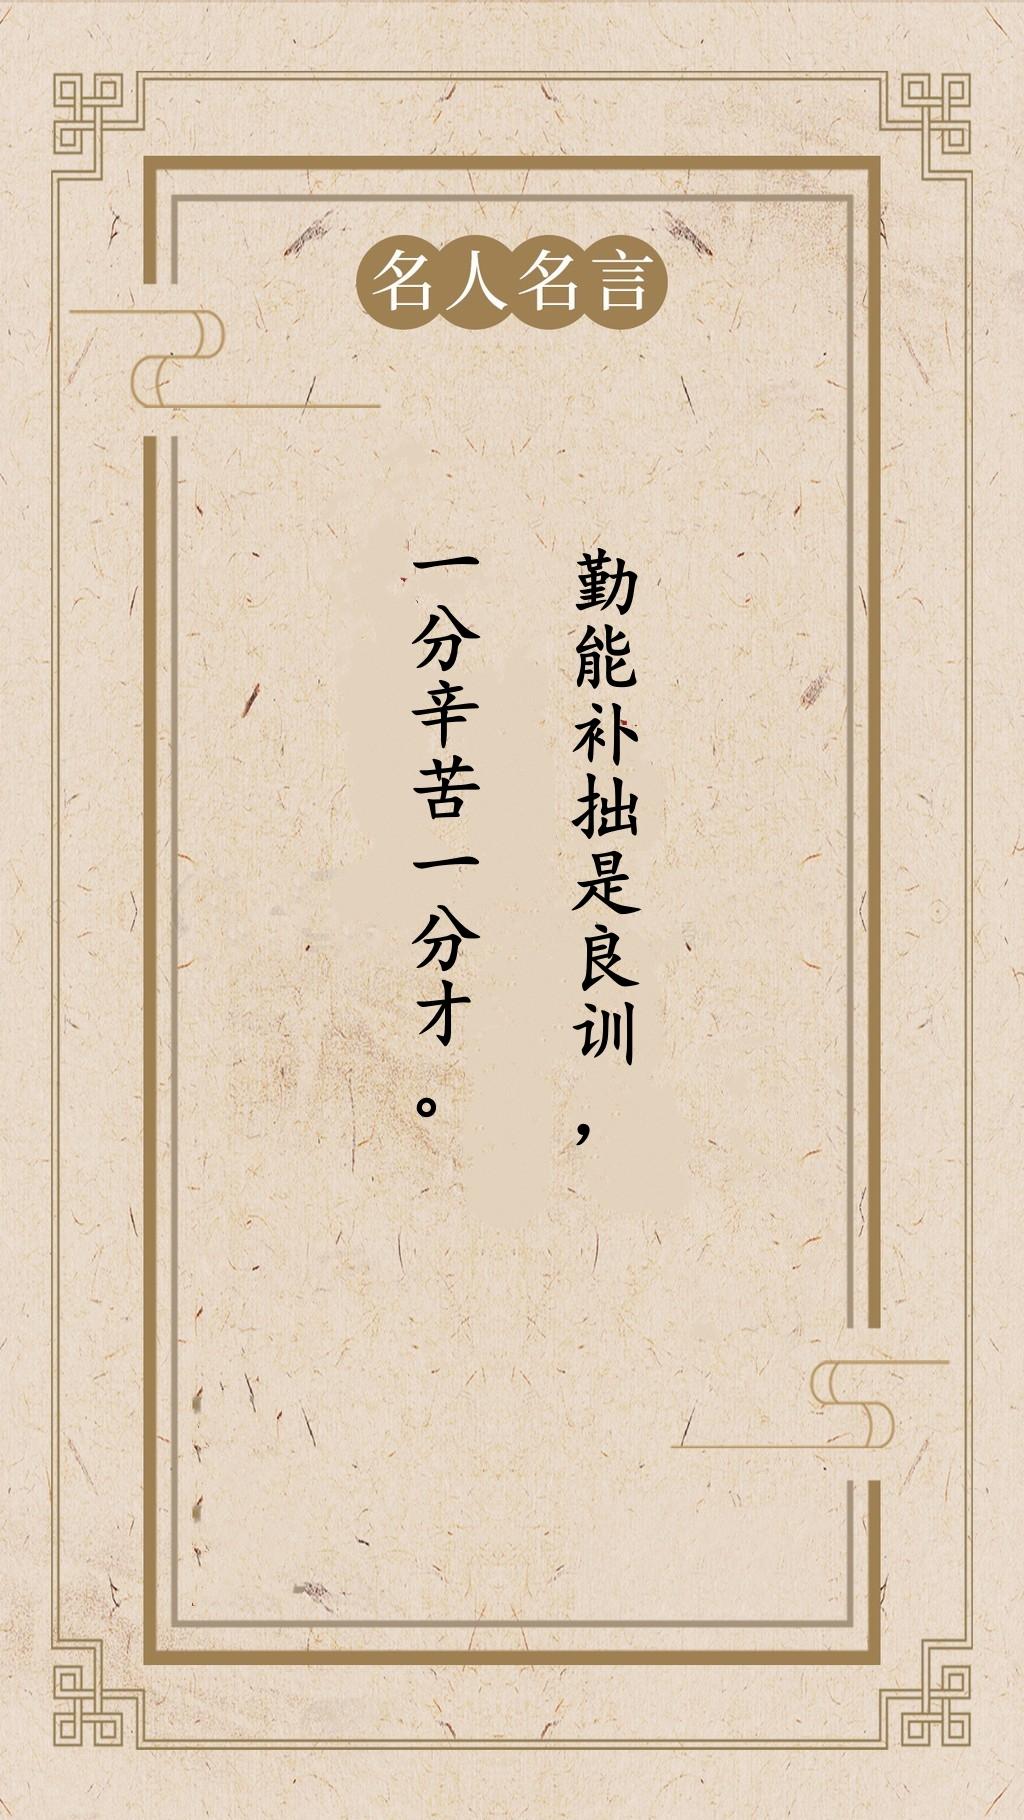 名人名言
勤能补拙是良训，
一分辛苦一分才。